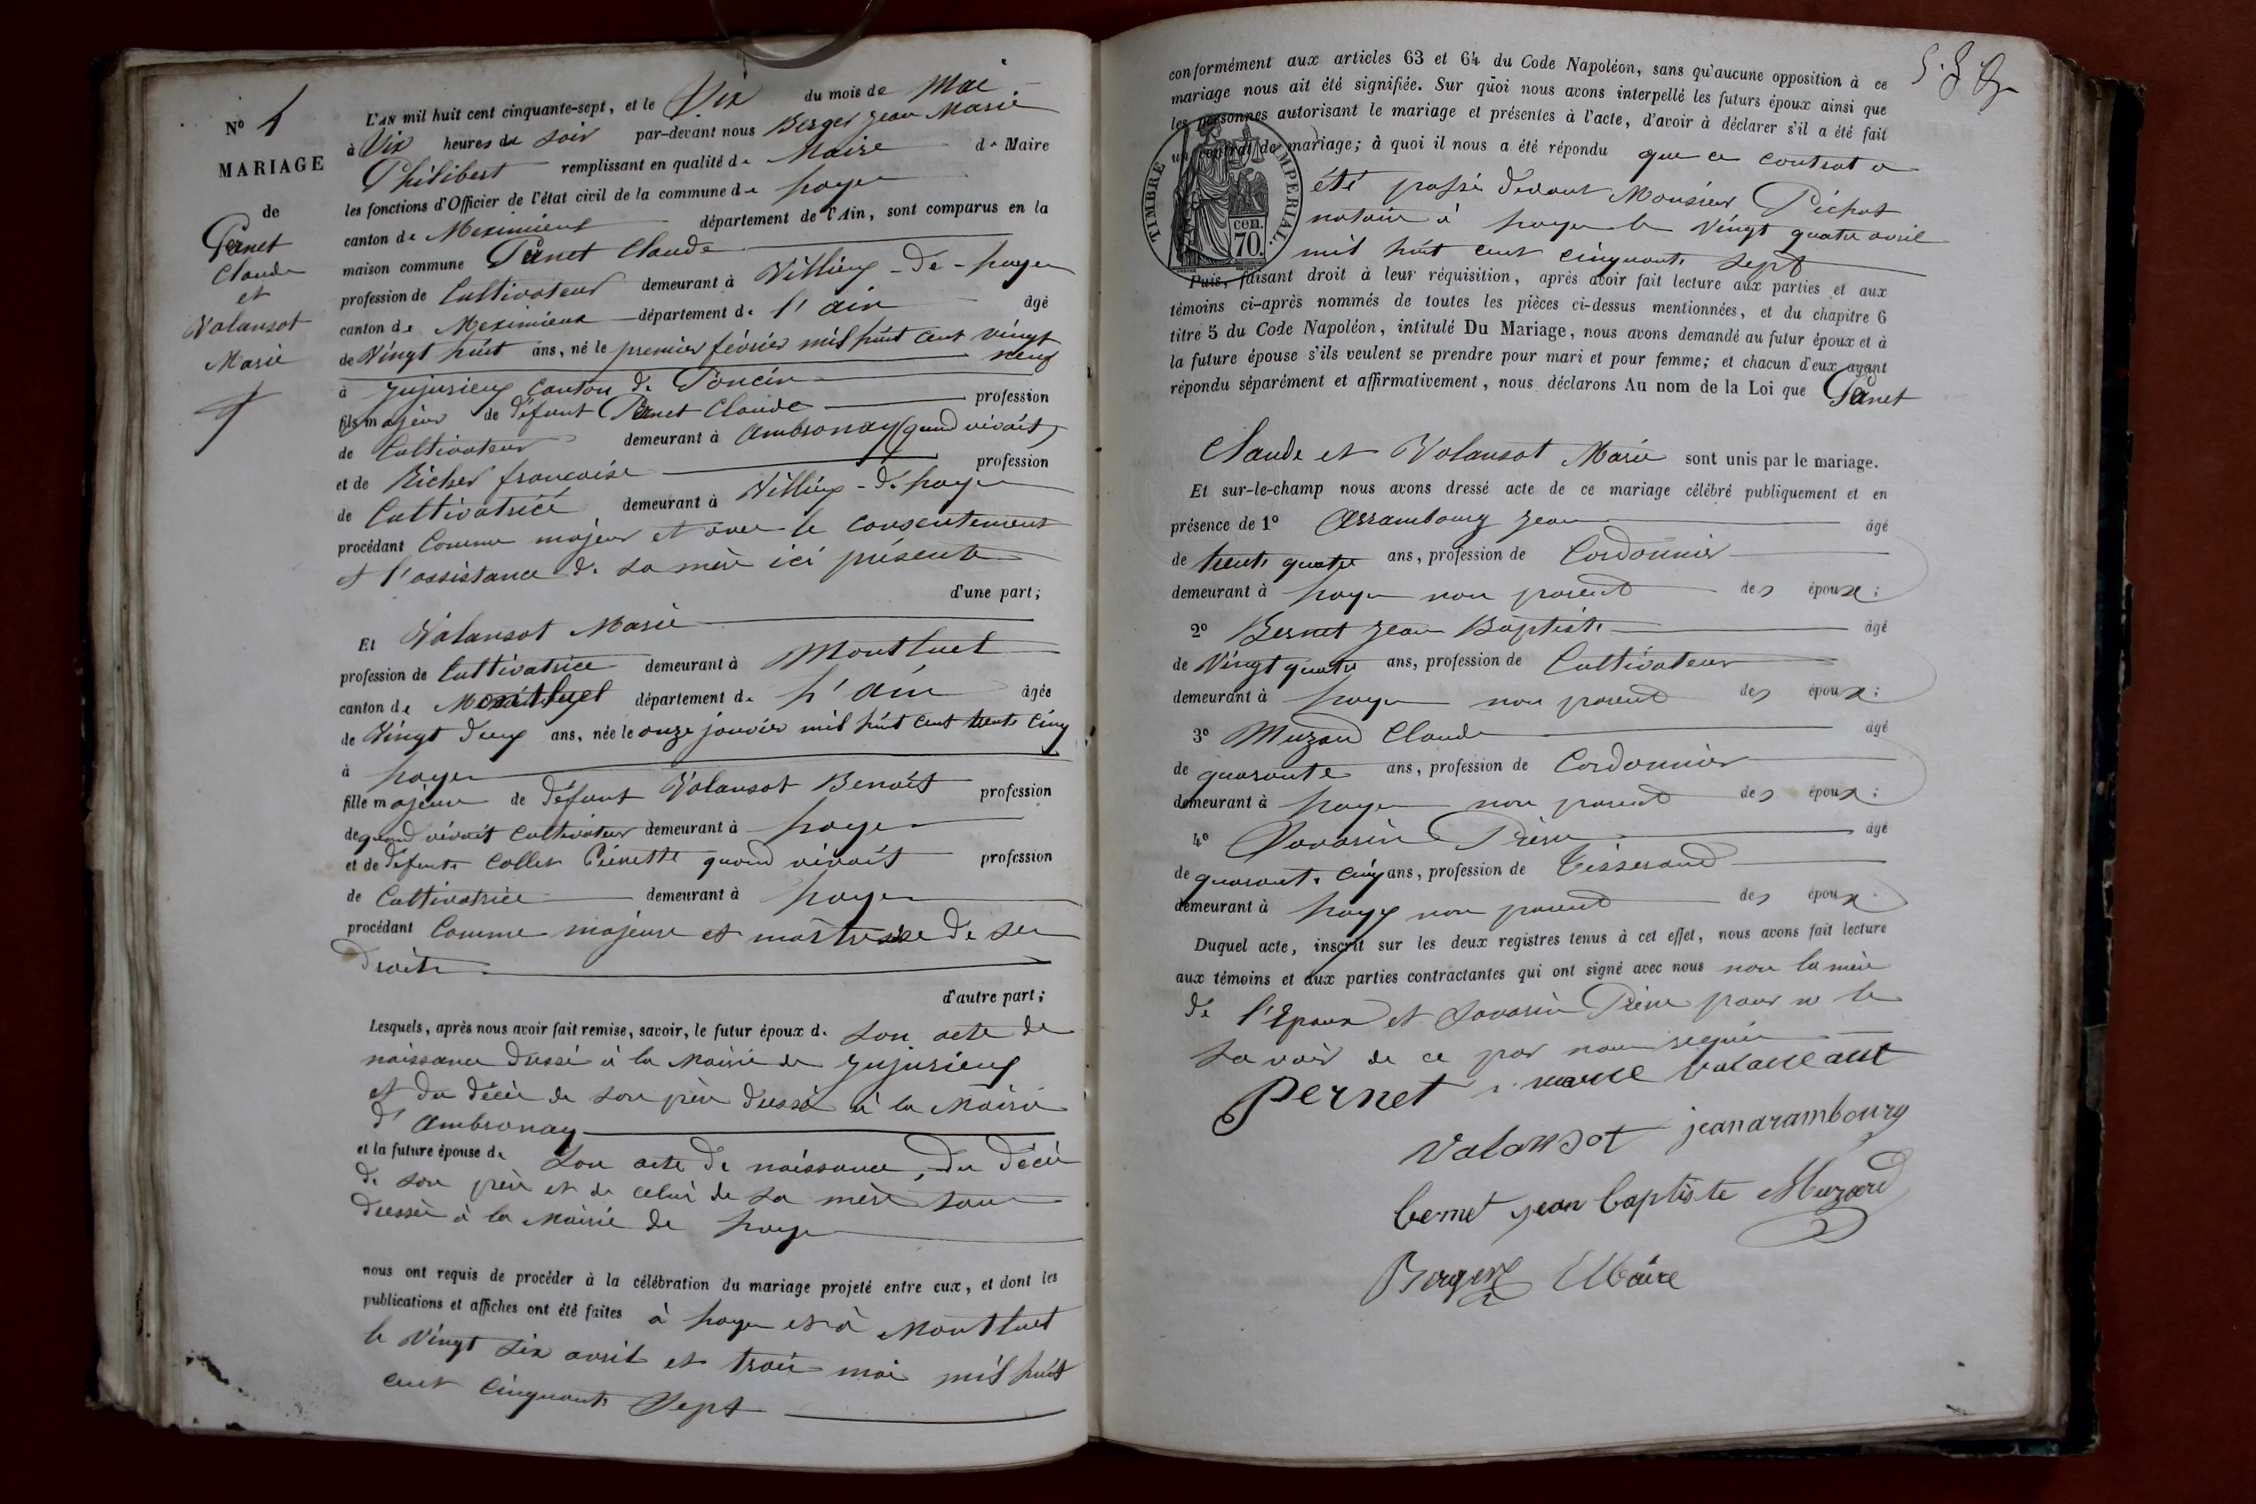 N° 4
MARIAGE
de
Pernet
Claude
et
Valansot
Marie
L'AN mil huit cent cinquante-sept, et le Dix du mois de Mai
à Dix heures du soir par-devant nous Berger Jean Marie
Philibert remplissant en qualité de Maire de Maire
les fonctions d'Officier de l'état civil de la commune de Loyes
canton de Meximieux département de l'Ain, sont comparus en la
maison commune Pernet Claude
profession de Cultivateur demeurant à Villieux-de-Loyes
canton de Meximieux département de l'ain âgé
de Vingt huit ans, né le premier février mil huit cent vingt
neuf
à Jujurieux Canton de Poncin
fils majeur de défunt Pernet Claude profession
de Cultivateur demeurant à Ambronay (quand vivait)
et de Richer françoise profession
de Cultivatrice demeurant à Villieux-de-Loyes
procédant Comme majeur et avec le consentement
et l'assistance de sa mère ici présente
d'une part;
Et Valansot Marie
profession de Cultivatrice demeurant à Montluel
canton de Montluel département de L'ain âgée
de Vingt deux ans, née le onze janvier mil huit cent trente cinq
à Loyes
fille majeure de défunt Valansot Benoît profession
de quand vivait cultivateur demeurant à Loyes
et de défunte Collet Pierrette quand vivait profession
de Cultivatrice demeurant à Loyes
procédant Comme majeure et maitresse de ses
droits
d'autre part;
Lesquels, après nous avoir fait remise, savoir, le futur époux de son acte de
naissance dressé à la Mairie de Jujurieux
et du décès de son père dressé à la Mairie
d'Ambronay
et la future épouse de Son acte de naissance, du décès
de son père et de celui de sa mère tous
dressés à la Mairie de Loyes
nous ont requis de procéder à la célébration du mariage projeté entre eux, et dont les
publications et affiches ont été faites à Loyes et à Montluel
le Vingt six avril et trois mai mil huit
cent cinquante Sept
conformément aux articles 63 et 64 du Code Napoléon, sans qu'aucune opposition à ce
mariage nous ait été signifiée. Sur quoi nous avons interpellé les futurs époux ainsi que
les personnes autorisant le mariage et présentes à l'acte, d'avoir à déclarer s'il a été fait
un contrat de mariage; à quoi il nous a été répondu que ce contrat a
été passé devant Monsieur Pichat
notaire à Loyes le Vingt quatre avril
mil huit cent cinquante sept
TIMBRE IMPERIAL.
cen.
70.
Puis, faisant droit à leur réquisition, après avoir fait lecture aux parties et aux
témoins ci-après nommés de toutes les pièces ci-dessus mentionnées, et du chapitre 6
titre 5 du Code Napoléon, intitulé Du Mariage, nous avons demandé au futur époux et à
la future épouse s'ils veulent se prendre pour mari et pour femme; et chacun d'eux ayant
répondu séparément et affirmativement, nous déclarons Au nom de la Loi que Pernet
Claude et Valansot Marie sont unis par le mariage.
Et sur-le-champ nous avons dressé acte de ce mariage célébré publiquement et en
présence de 1° Arrambourg Jean âgé
de trente quatre ans, profession de Cordonnier
demeurant à Loyes non parent des époux;
2° Bernet Jean Baptiste âgé
de Vingt quatre ans, profession de Cultivateur
demeurant à Loyes non parent des époux;
3° Muzard Claude âgé
de quarante ans, profession de Cordonnier
demeurant à Loyes non parent des époux;
4° Savarin Pierre âgé
de quarante cinq ans, profession de Tisserand
demeurant à Loyes non parent des époux.
Duquel acte, inscrit sur les deux registres tenus à cet effet, nous avons fait lecture
aux témoins et aux parties contractantes qui ont signé avec nous non la mère
de l'Epoux et Savarin Pierre pour ne le
savoir de ce par nous requis
Pernet marie
Valansot jean arambourg
bernet jean baptiste Muzard
Berger Maire